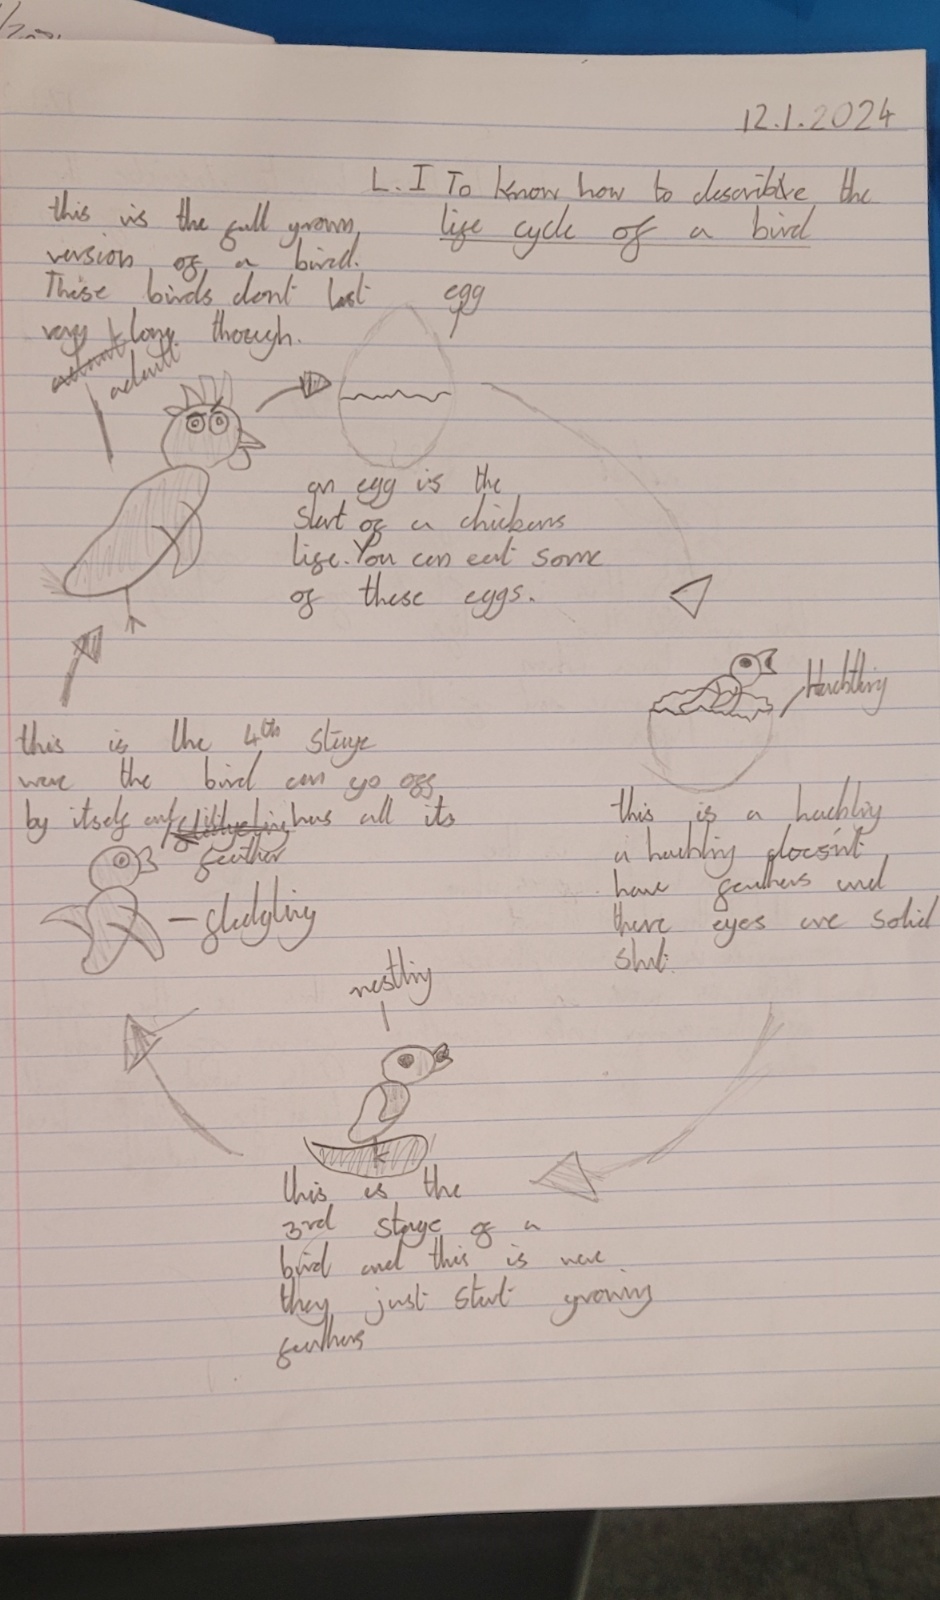 12.1.2024
L.I To know how to describe the
life cycle of a bird
this is the full grown
version of a bird.
These birds dont last
very long though.
adult
egg
an egg is the
start of a chickens
life. You can eat some
of these eggs.
Hachling
this is a hachling
a hachling doesn't
have feathers and
there eyes are solid
shut.
nestling
this is the
3rd stage of a
bird and this is were
they just start growing
feathers
this is the 4th stage
were the bird can go off
by itself and has all its
feather
fledgling